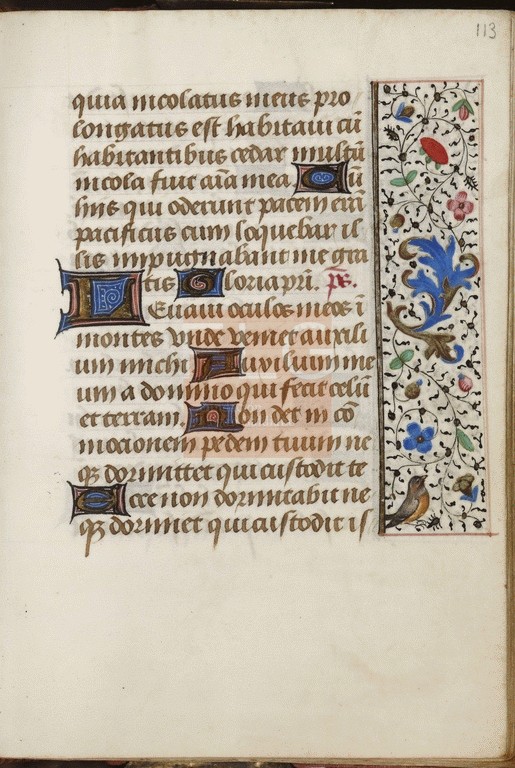 113
quia incolatus meus pro
longatus est habitaui cū
habitantibus cedar multū
incola fuit aīa mea. Cū
hiis qui oderunt pacem erā
pacificus cum loquebar il
lis inpugnabant me gra
tis Gloria pri. ps.
Leuaui oculos meos ī
montes vnde veniet auxili
um michi Auxilium me
um a domino qui fecit celū
et terram. Non det in cō
mocionem pedem tuum ne
q̄ dormitet qui custodit te
Ecce non dormitabit ne
q̄ dormiet qui custodit is